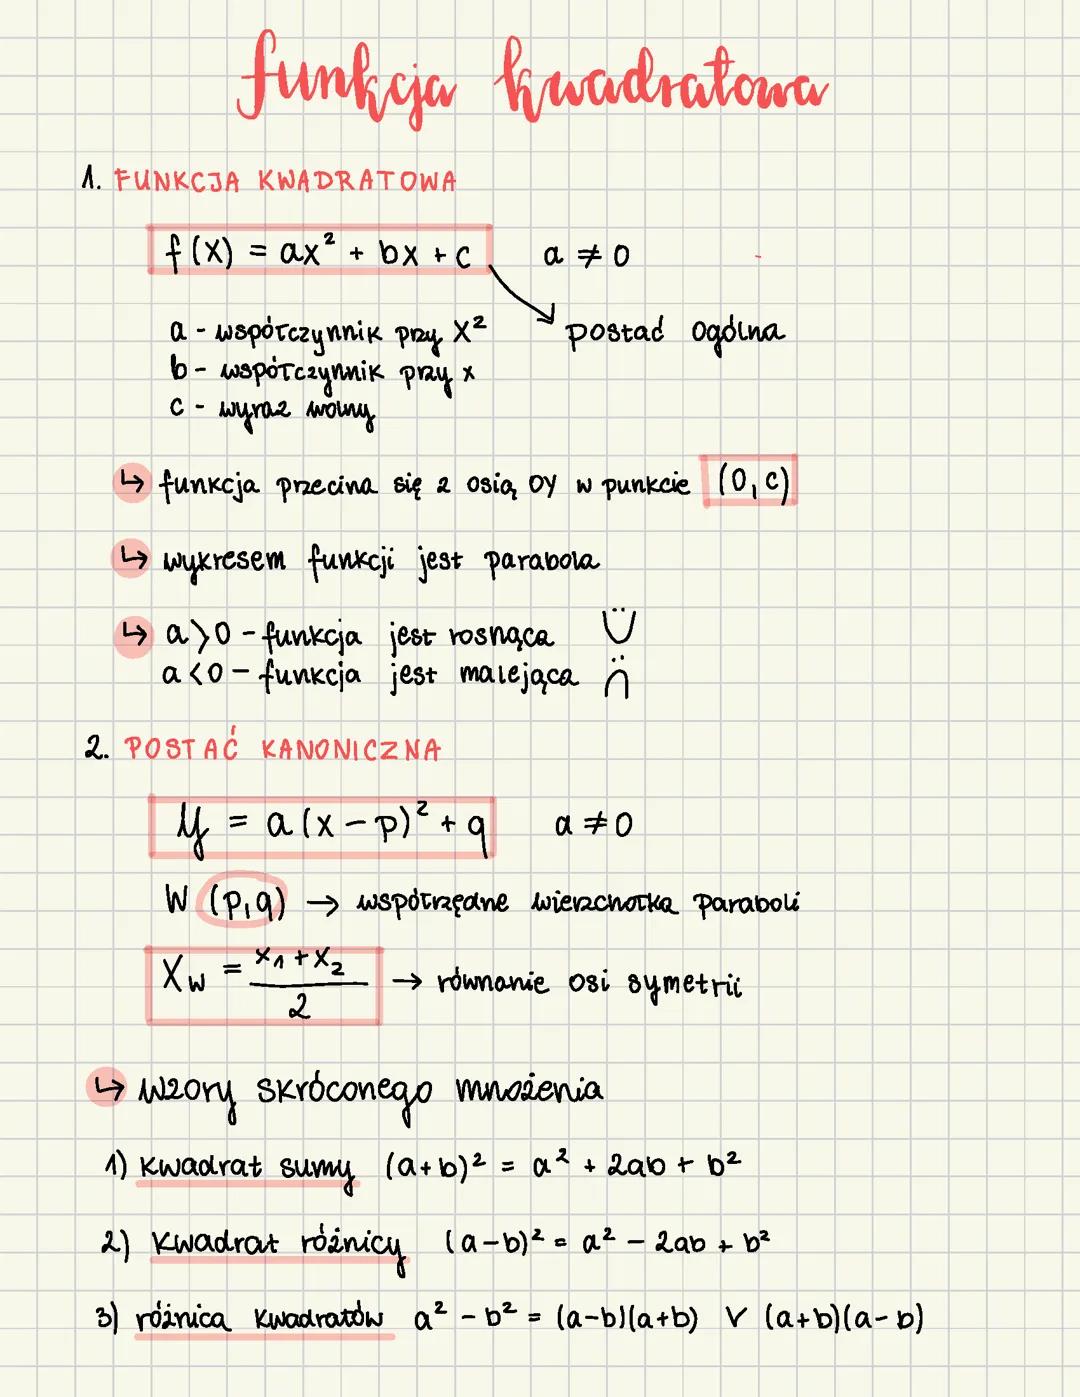 funkcja kwadratowa
1. FUNKCJA KWADRATOWA
f(x) = ax² + bx + c a ≠ 0
a - współczynnik przy x² postać ogólna
b - współczynnik przy x
c - wyraz wolny
↳ funkcja przecina się z osią OY w punkcie (0, c)
↳ wykresem funkcji jest parabola
↳ a > 0 - funkcja jest rosnąca
a < 0 - funkcja jest malejąca
2. POSTAĆ KANONICZNA
y = a(x - p)² + q a ≠ 0
W (p, q) → współrzędne wierzchołka paraboli
Xw = x₁ + x₂ / 2 → równanie osi symetrii
↳ wzory skróconego mnożenia
1) kwadrat sumy (a+b)² = a² + 2ab + b²
2) kwadrat różnicy (a-b)² = a² - 2ab + b²
3) różnica kwadratów a² - b² = (a-b)(a+b) ∨ (a+b)(a-b)